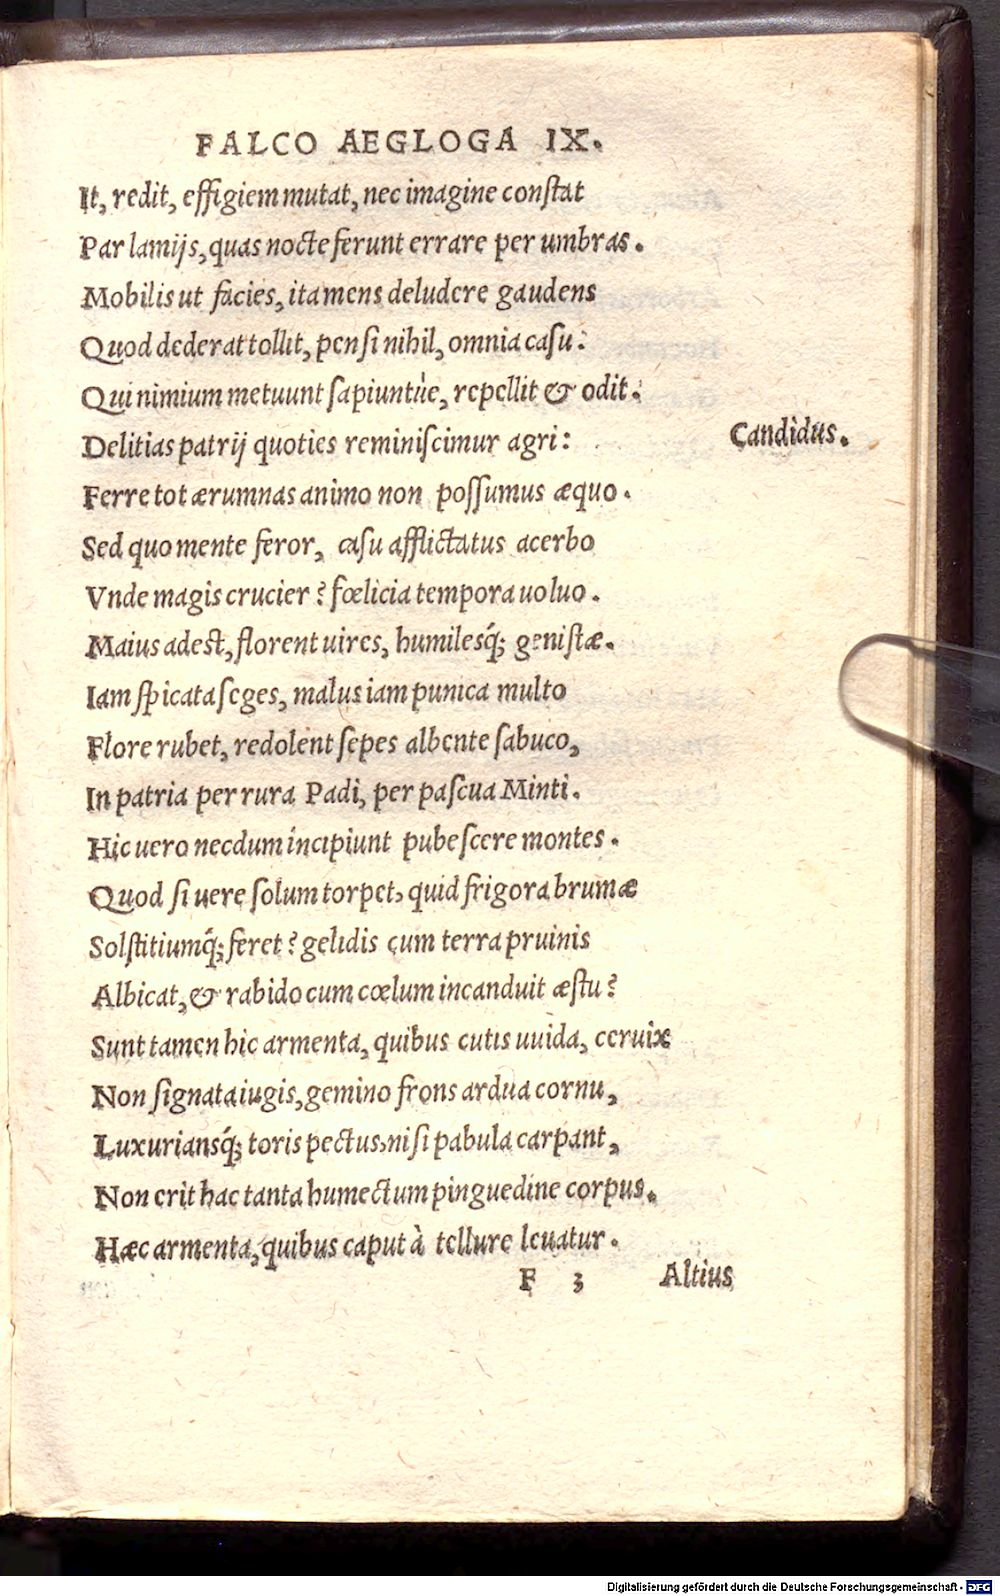 FALCO AEGLOGA IX.
It, redit, effigiem mutat, nec imagine conſtat
Par lamijs, quas nocte ferunt errare per umbras.
Mobilis ut facies, ita mens deludere gaudens
Quod dederat tollit, penſi nihil, omnia caſu:
Qui nimium metuunt ſapiuntùe, repellit & odit.
Delitias patrij quoties reminiſcimur agri: Candidus.
Ferre tot ærumnas animo non poſſumus æquo.
Sed quo mente feror, caſu afflictatus acerbo
Vnde magis crucier? fœlicia tempora uoluo.
Maius adest, florent uires, humilesq́; geniſtæ.
Iam ſpicata ſeges, malus iam punica multo
Flore rubet, redolent ſepes albente ſabuco,
In patria per rura Padi, per paſcua Minti.
Hic uero necdum incipiunt pubeſcere montes.
Quod ſi uere ſolum torpet, quid frigora brumæ
Solſtitiumq́; feret? gelidis cum terra pruinis
Albicat, & rabido cum cœlum incanduit æſtu?
Sunt tamen hic armenta, quibus cutis uuida, ceruix
Non ſignata iugis, gemino frons ardua cornu,
Luxuriansq́; toris pectus, niſi pabula carpant,
Non erit hac tanta humectum pinguedine corpus.
Hæc armenta, quibus caput à tellure leuatur.
F 3 Altius
Digitalisierung gefördert durch die Deutsche Forschungsgemeinschaft - DFG